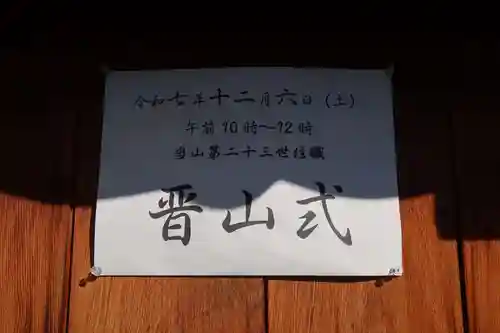 令和七年十二月六日（土）
午前10時～12時
当山第二十三世住職
晋山式